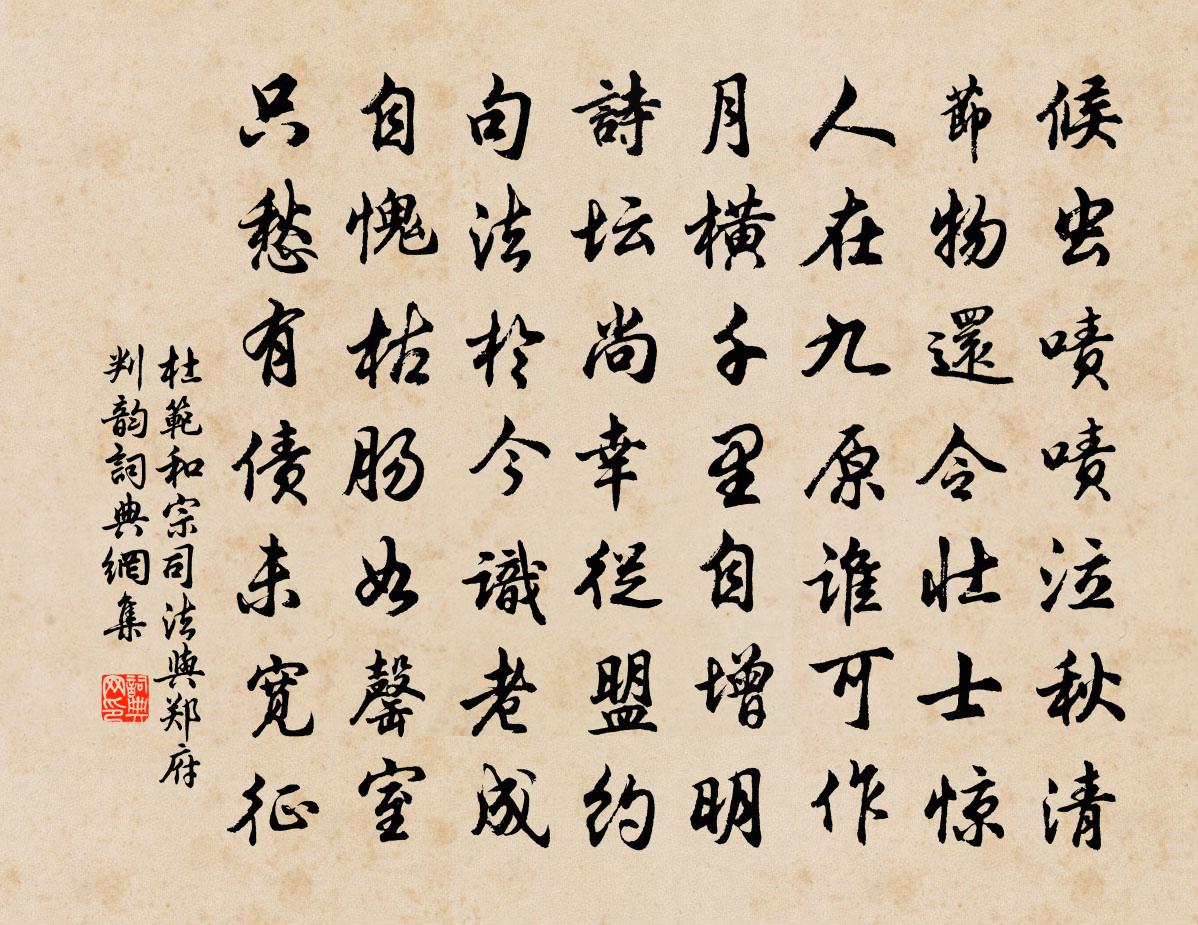 候虫啧啧泣秋清
节物還令壮士惊
人在九原谁可作
月横千里自增明
詩坛尚幸従盟约
句法於今識老成
自愧枯肠如罄室
只愁有债未宽征
杜範和宗司法與郑府
判韵詞典網集
詞典网印